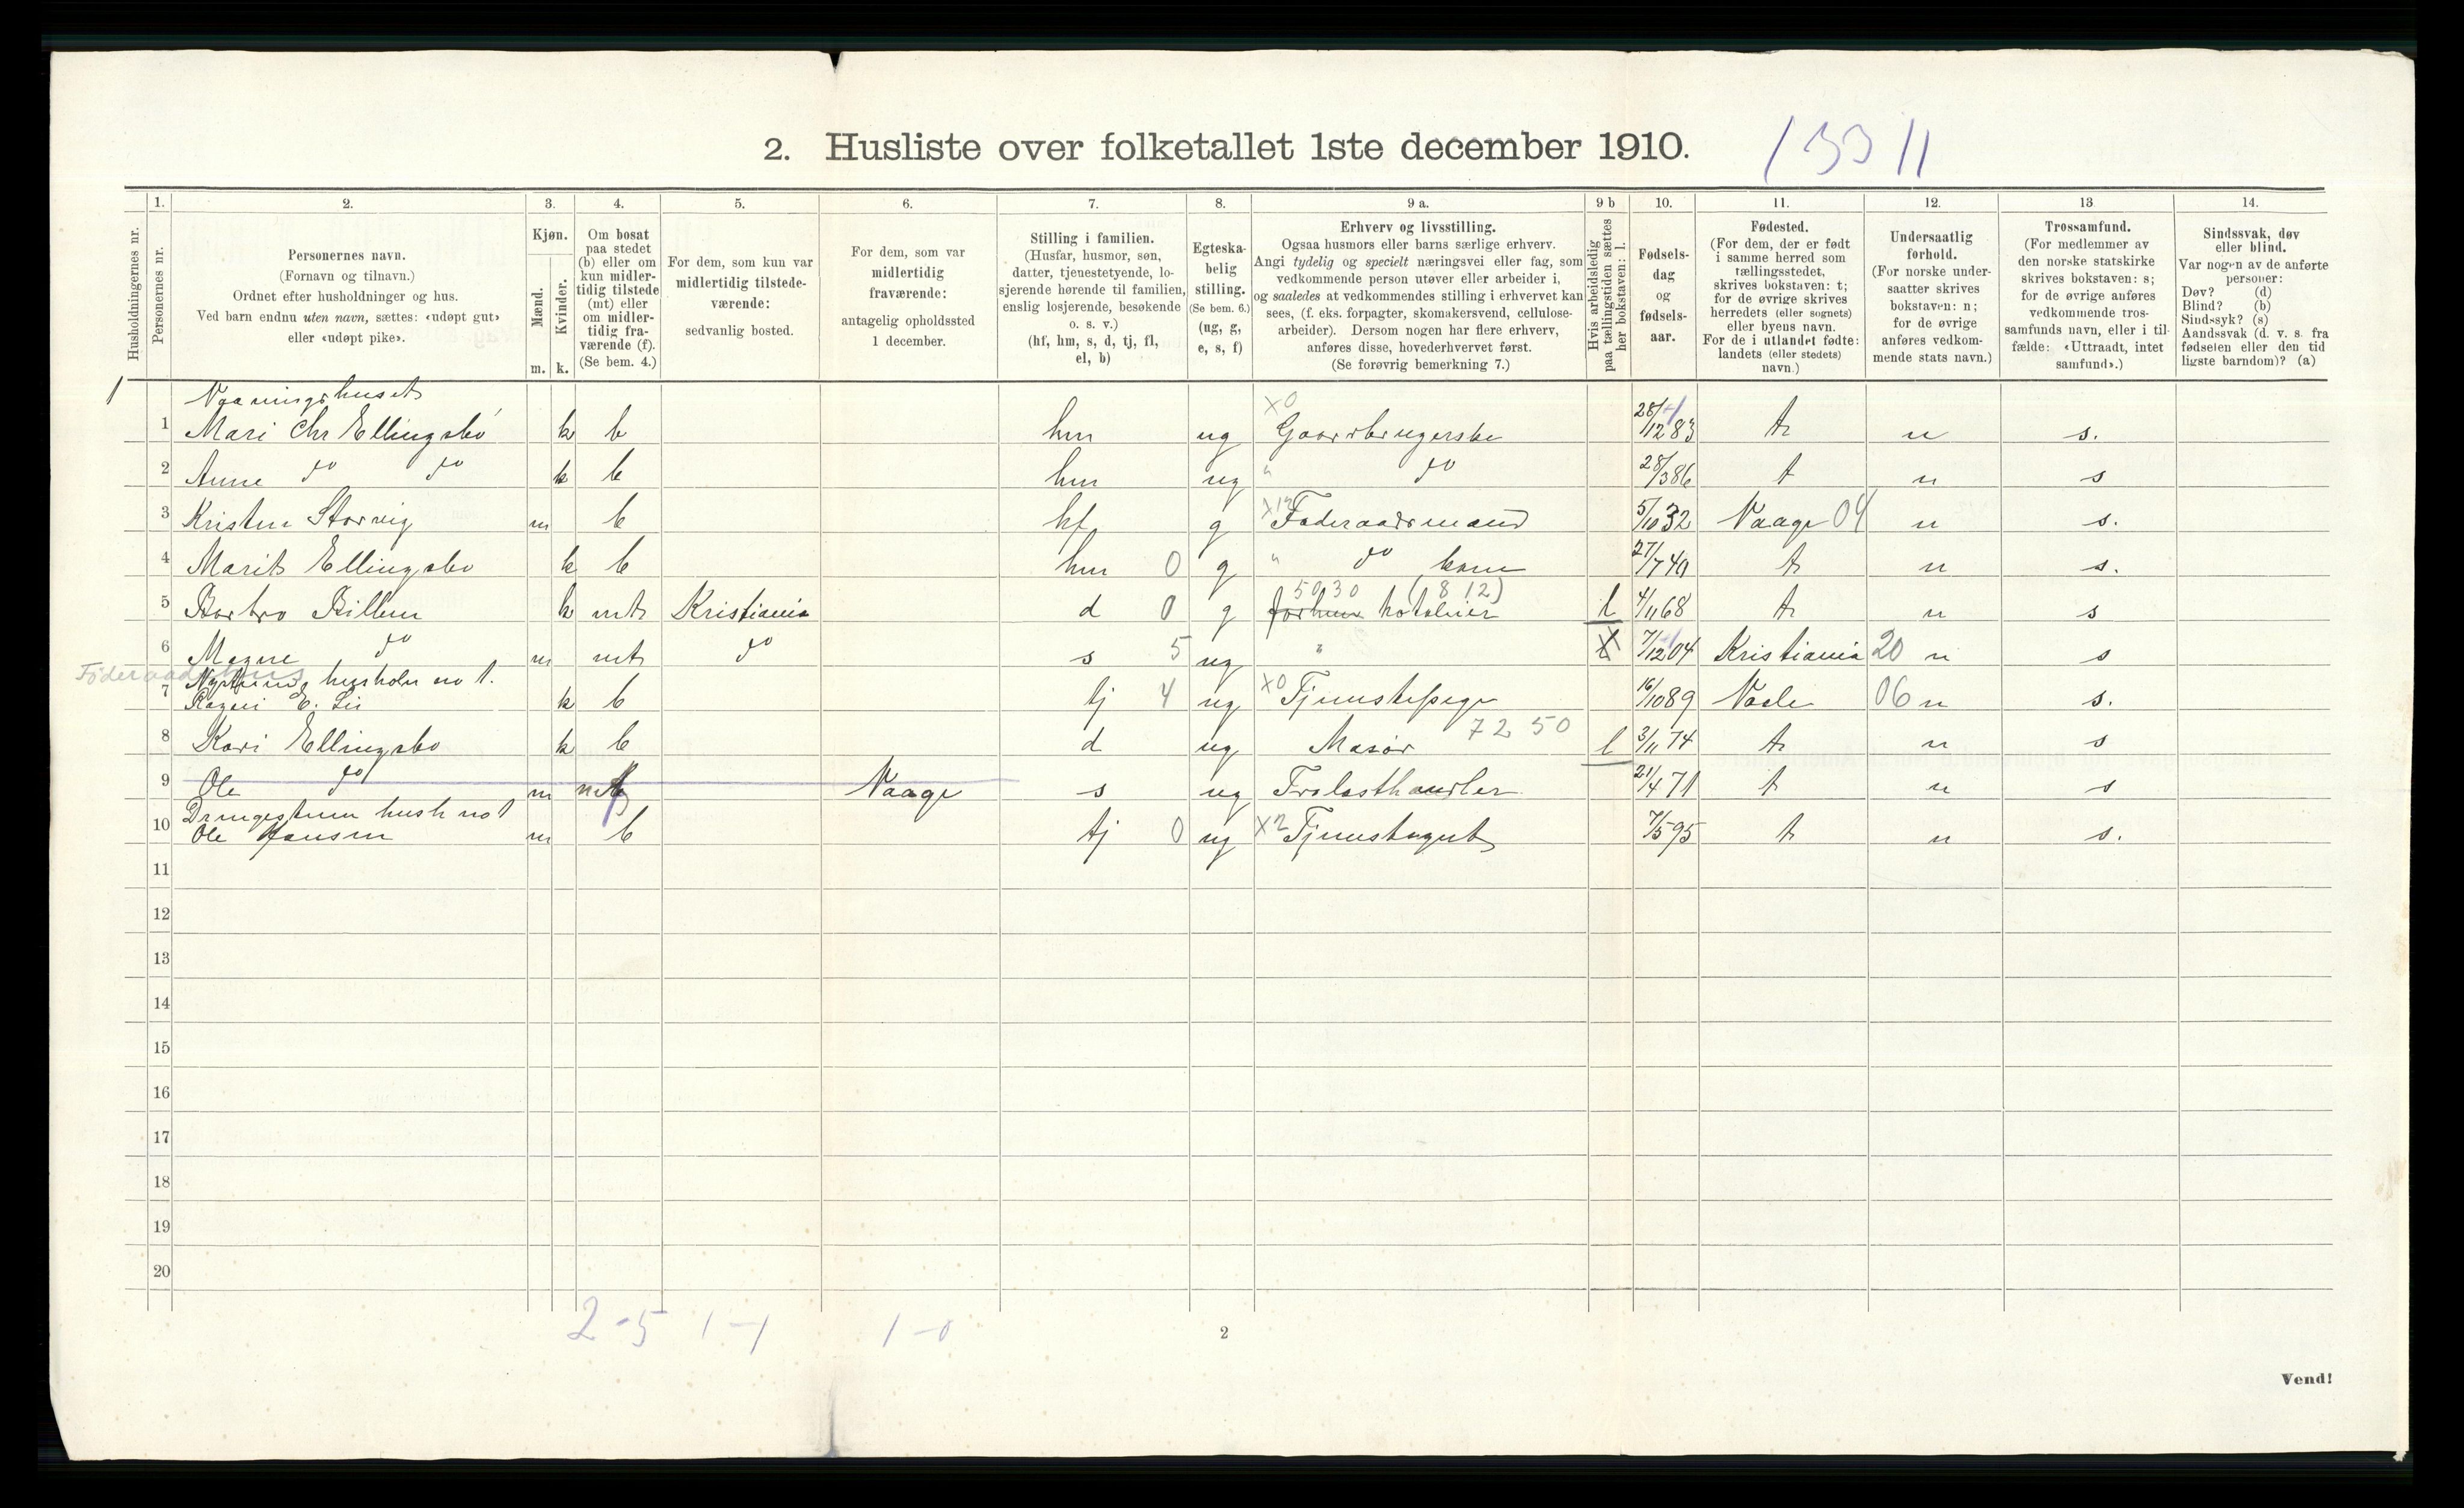 2. Husliste over folketallet 1ste december 1910. 133 11
Husholdningernes nr.
1.
Personernes nr.
2.
Personernes navn.
(Fornavn og tilnavn.)
Ordnet efter husholdninger og hus.
Ved barn endnu uten navn, sættes: «udøpt gut»
eller «udøpt pike».
3.
Kjøn.
Mænd. Kvinder.
m. k.
4.
Om bosat
paa stedet
(b) eller om
kun midler-
tidig tilstede
(mt) eller
om midler-
tidig fra-
værende (f).
(Se bem. 4.)
5.
For dem, som kun var
midlertidig tilstede-
værende:
sedvanlig bosted.
6.
For dem, som var
midlertidig
fraværende:
antagelig opholdssted
1 december.
7.
Stilling i familien.
(Husfar, husmor, søn,
datter, tjenestetyende, lo-
sjerende hørende til familien,
enslig losjerende, besøkende
o. s. v.)
(hf, hm, s, d, tj, fl,
el, b)
8.
Egteska-
belig
stilling.
(Se bem. 6.)
(ug, g,
e, s, f)
9 a.
Erhverv og livsstilling.
Ogsaa husmors eller barns særlige erhverv.
Angi tydelig og specielt næringsvei eller fag, som
vedkommende person utøver eller arbeider i,
og saaledes at vedkommendes stilling i erhvervet kan
sees, (f. eks. forpagter, skomakersvend, cellulose-
arbeider). Dersom nogen har flere erhverv,
anføres disse, hovederhvervet først.
(Se forøvrig bemerkning 7.)
9 b
Hvis arbeidsledig
paa tællingstiden sættes
her bokstaven: l.
10.
Fødsels-
dag
og
fødsels-
aar.
11.
Fødested.
(For dem, der er født
i samme herred som
tællingsstedet,
skrives bokstaven: t;
for de øvrige skrives
herredets (eller sognets)
eller byens navn.
For de i utlandet fødte:
landets (eller stedets)
navn.)
12.
Undersaatlig
forhold.
(For norske under-
saatter skrives
bokstaven: n;
for de øvrige
anføres vedkom-
mende stats navn.)
13
Trossamfund.
(For medlemmer av
den norske statskirke
skrives bokstaven: s;
for de øvrige anføres
vedkommende tros-
samfunds navn, eller i til-
fælde: «Uttraadt, intet
samfund».)
14.
Sindssvak, døv
eller blind.
Var nogen av de anførte
personer:
Døv? (d)
Blind? (b)
Sindssyk? (s)
Aandssvak (d. v. s. fra
fødselen eller den tid
ligste barndom)? (a)
1 Vaaningshuset
1 Mari Chr Ellingsbø k b hm ug X0 Gaardbrugerske 28/12 83 t n s.
2 Anne do do k b hm ug " do 28/3 86 t n s
3 Kristen Storvig m b hf g X12 Føderaadsmand 5/10 32 Vaage 04 n s.
4 Marit Ellingsbø k b hm 0 g " do kone 27/7 40 t n s.
50,30 (8 12)
5 Barbro Billen k mt Kristiania d 0 g forhen hoteleier l 4/11 68 t n s
6 Magne do m mt do s 5 ug " 7/12 04 Kristiania 20 n s
Føderaadshus
husholn no 1.
7 Ragni E. Lie k b tj 4 ug X0 Tjenestepige 16/10 89 Vaale 06 n s.
8 Kari Ellingsbo k b d ug Masør 72 50 l 3/11 74 t n s
9 Ole do m Vaage s ug Trælasthandler 21/4 71 t n s
Drengestuen hush no 1
10 Ole Hansen m b tj 0 ug X2 Tjenestegut 7/5 95 t n s.
11
12
13
14
15
16
17
18
19
20
2-5 1-1 1-0
2
Vend!